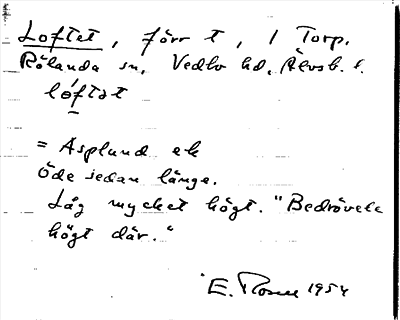 Loftet, förr t, 1 Torp.
Rölanda sn, Vedbo hd, Älvsb. l.
lóftət
= Asplund ek
Öde sedan länge.
Låg mycket högt. "Bedrövele
högt där."
E. Rosell 1954